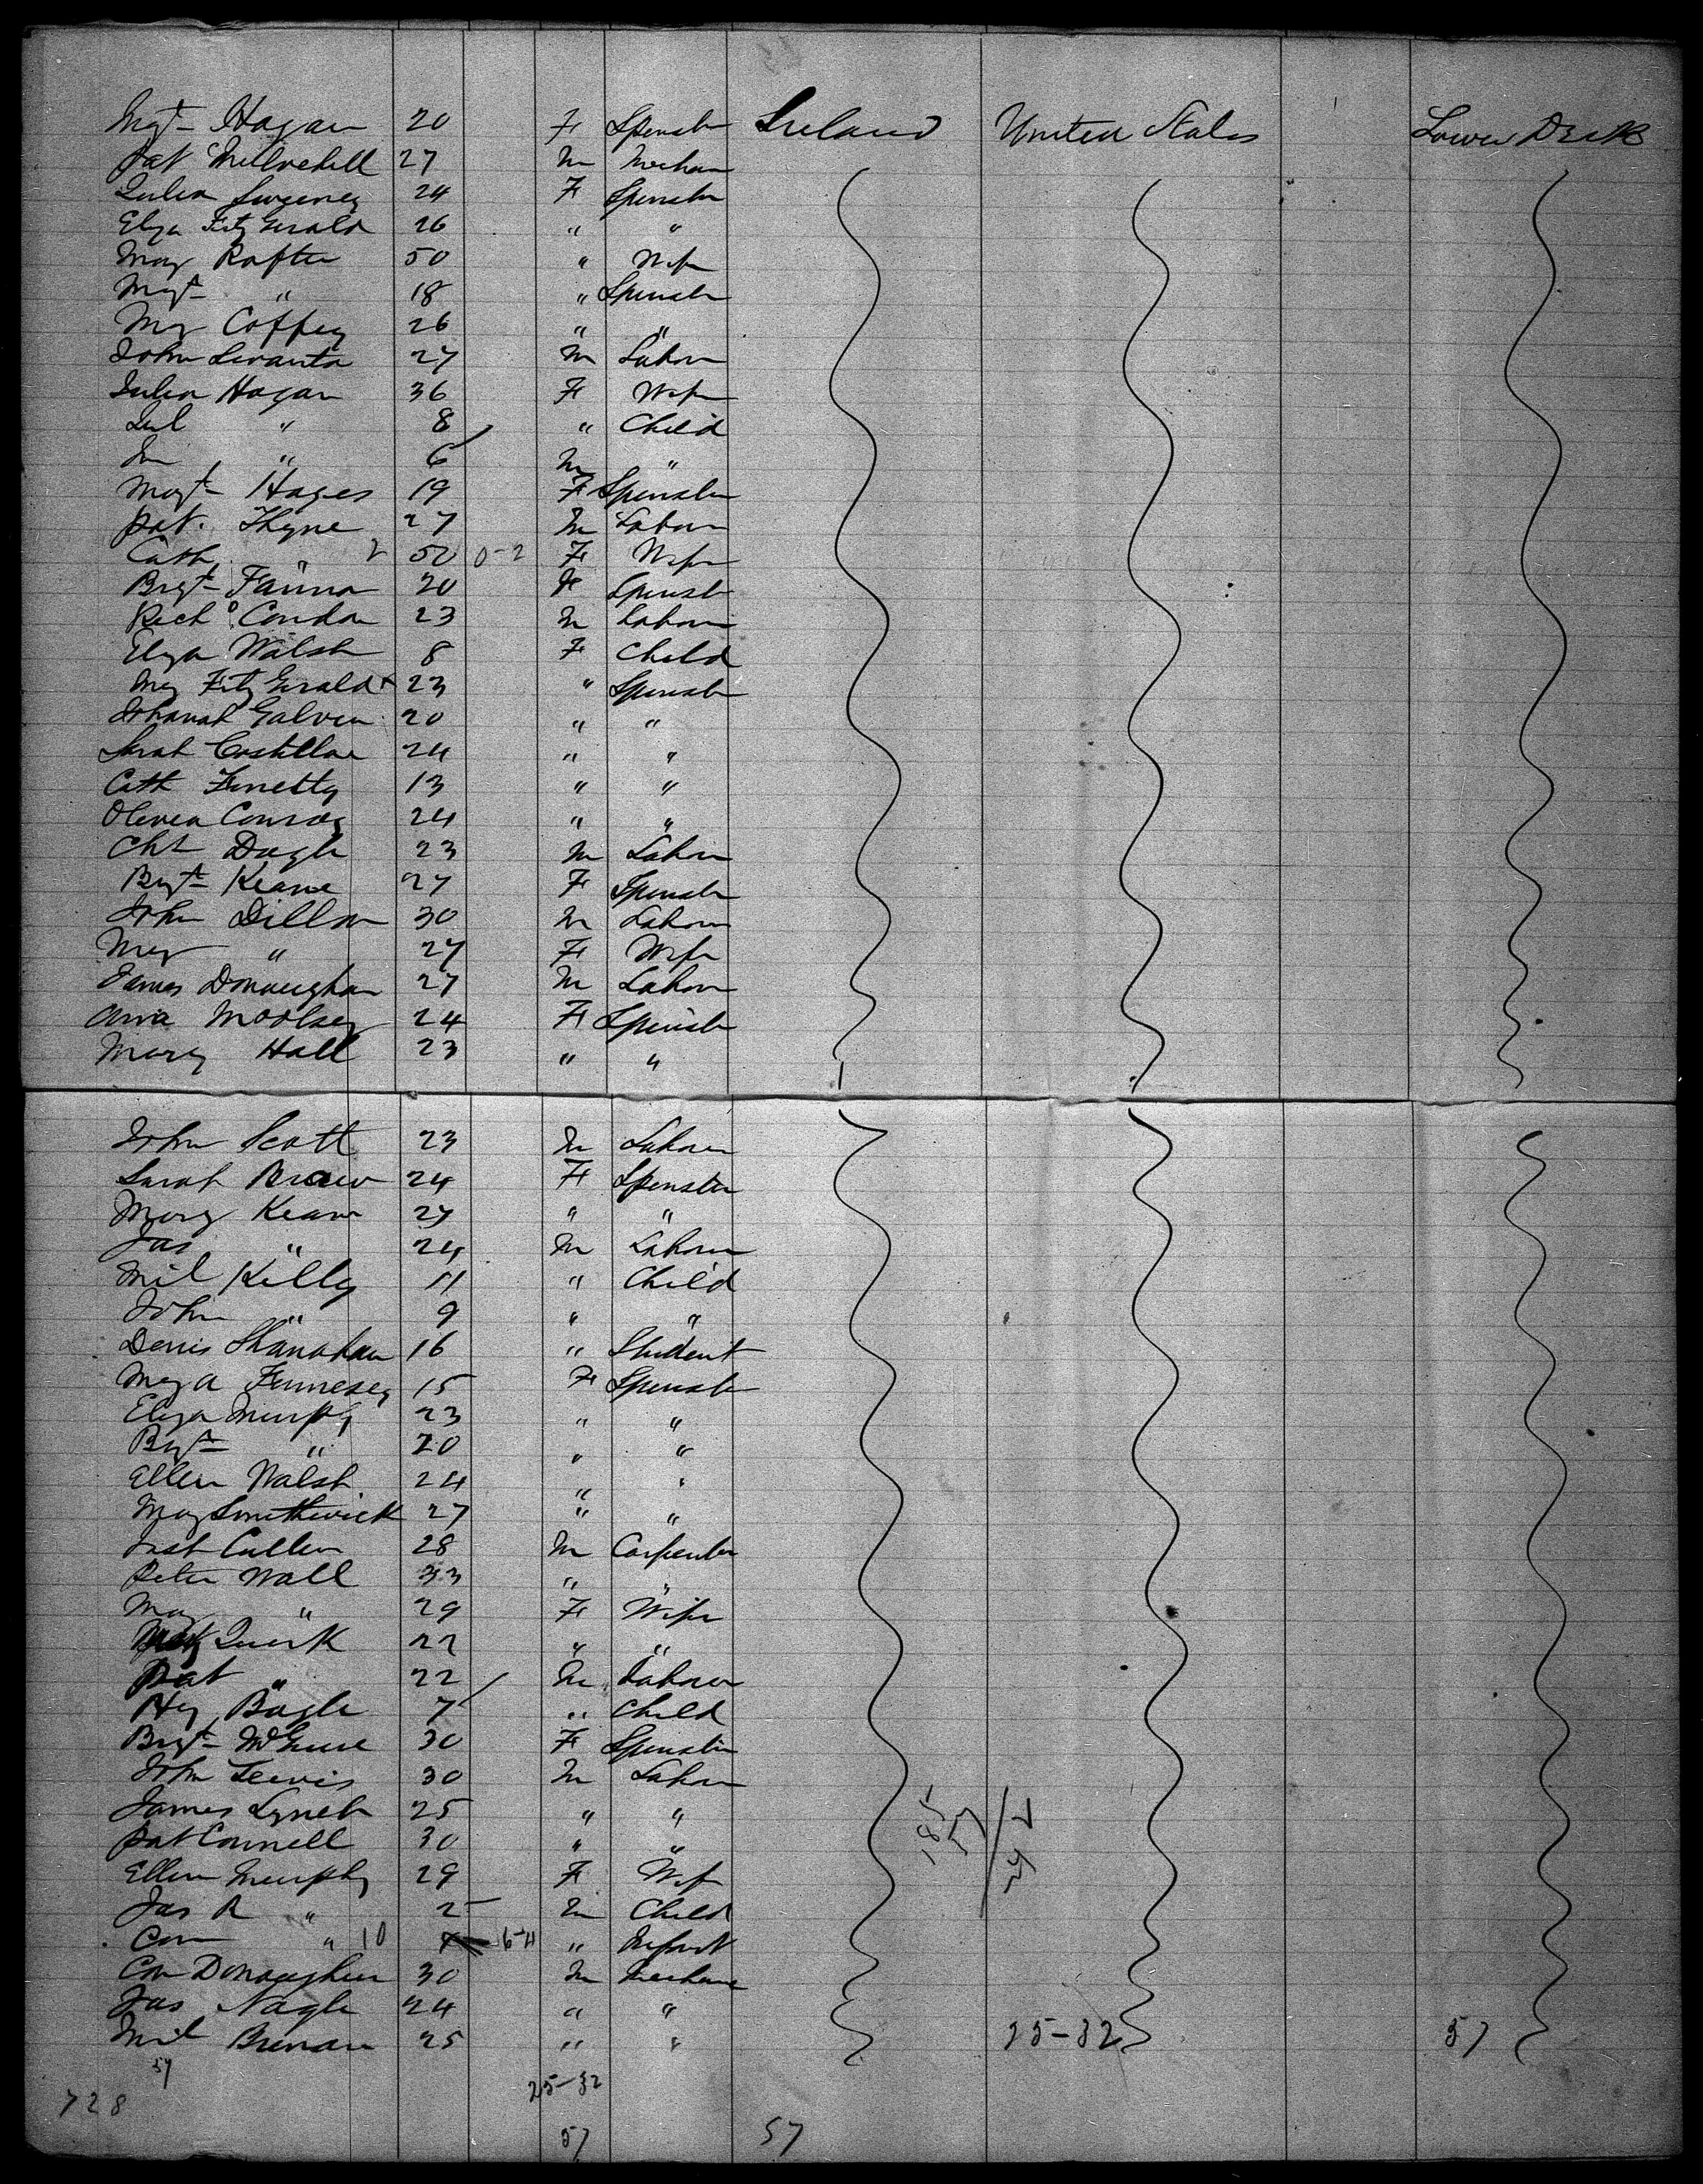 Mgt Hogan 20 F Spinster Ireland United States Lower Deck
Pat 27 M Mechan
Julia Sweeney 24 F Spinster
Eliza FitzGerald 26 " "
May Rafter 50 " Wife
Mgt " 18 " Spinster
My Coffey 26 " "
John 27 M Labour
Julia Hogan 36 F Wife
Jul " 8 " Child
Jn " 6 M "
Magt Hages 19 F Spinster
Pat. Thyne 27 M Labour
Cath " 2 50 0-2 F Wife
Brgt Fanna 20 F Spinst
Richd Condon 23 M Labour
Eliza Walsh 8 F Child
My FitzGerald 23 " Spinster
Johanah Galvin 20 " "
Sarah Costelloe 24 " "
Cath Finetty 13 " "
Olivea Conroy 24 " "
Cht Dagle 23 M Labour
Bryt Keane 27 F Spinster
John Dillon 30 M Labour
Mary " 27 F Wife
James Donaughan 27 M Labour
Anna Woolsey 24 F Spinster
Mary Hall 23 " "
John Scott 23 M Labour
Sarah 24 F Spinster
Mary Keane 27 " "
Jas " 24 M Labour
Mil Killy 11 " Child
John " 9 " "
Denis Shanahan 16 " Student
Mey A Finnesey 15 F Spinster
Eliza Murphy 23 " "
Bryt " 20 " "
Ellen Walsh 24 " "
May Smithwick 27 " "
Cullen 28 M Carpenter
Peter Wall 33 " "
May " 29 F Wife
Quirk 22 " "
Pat " 22 M Labour
Hy Bagle 7 " Child
Brgt McGuire 30 F Spinster
John Lewis 30 M Labour
James Lynch 25 " "
Pat Connell 30 " "
Ellen Murphy 29 F Wife
Jas R " 2 M Child
Con " 10 6-11 " Infant
Con Donaughue 30 M Mechanic
Jas Nagle 24 " "
Mil Brenan 25 " " 25-32 57
57
25-32
728
57 57
185
57
242